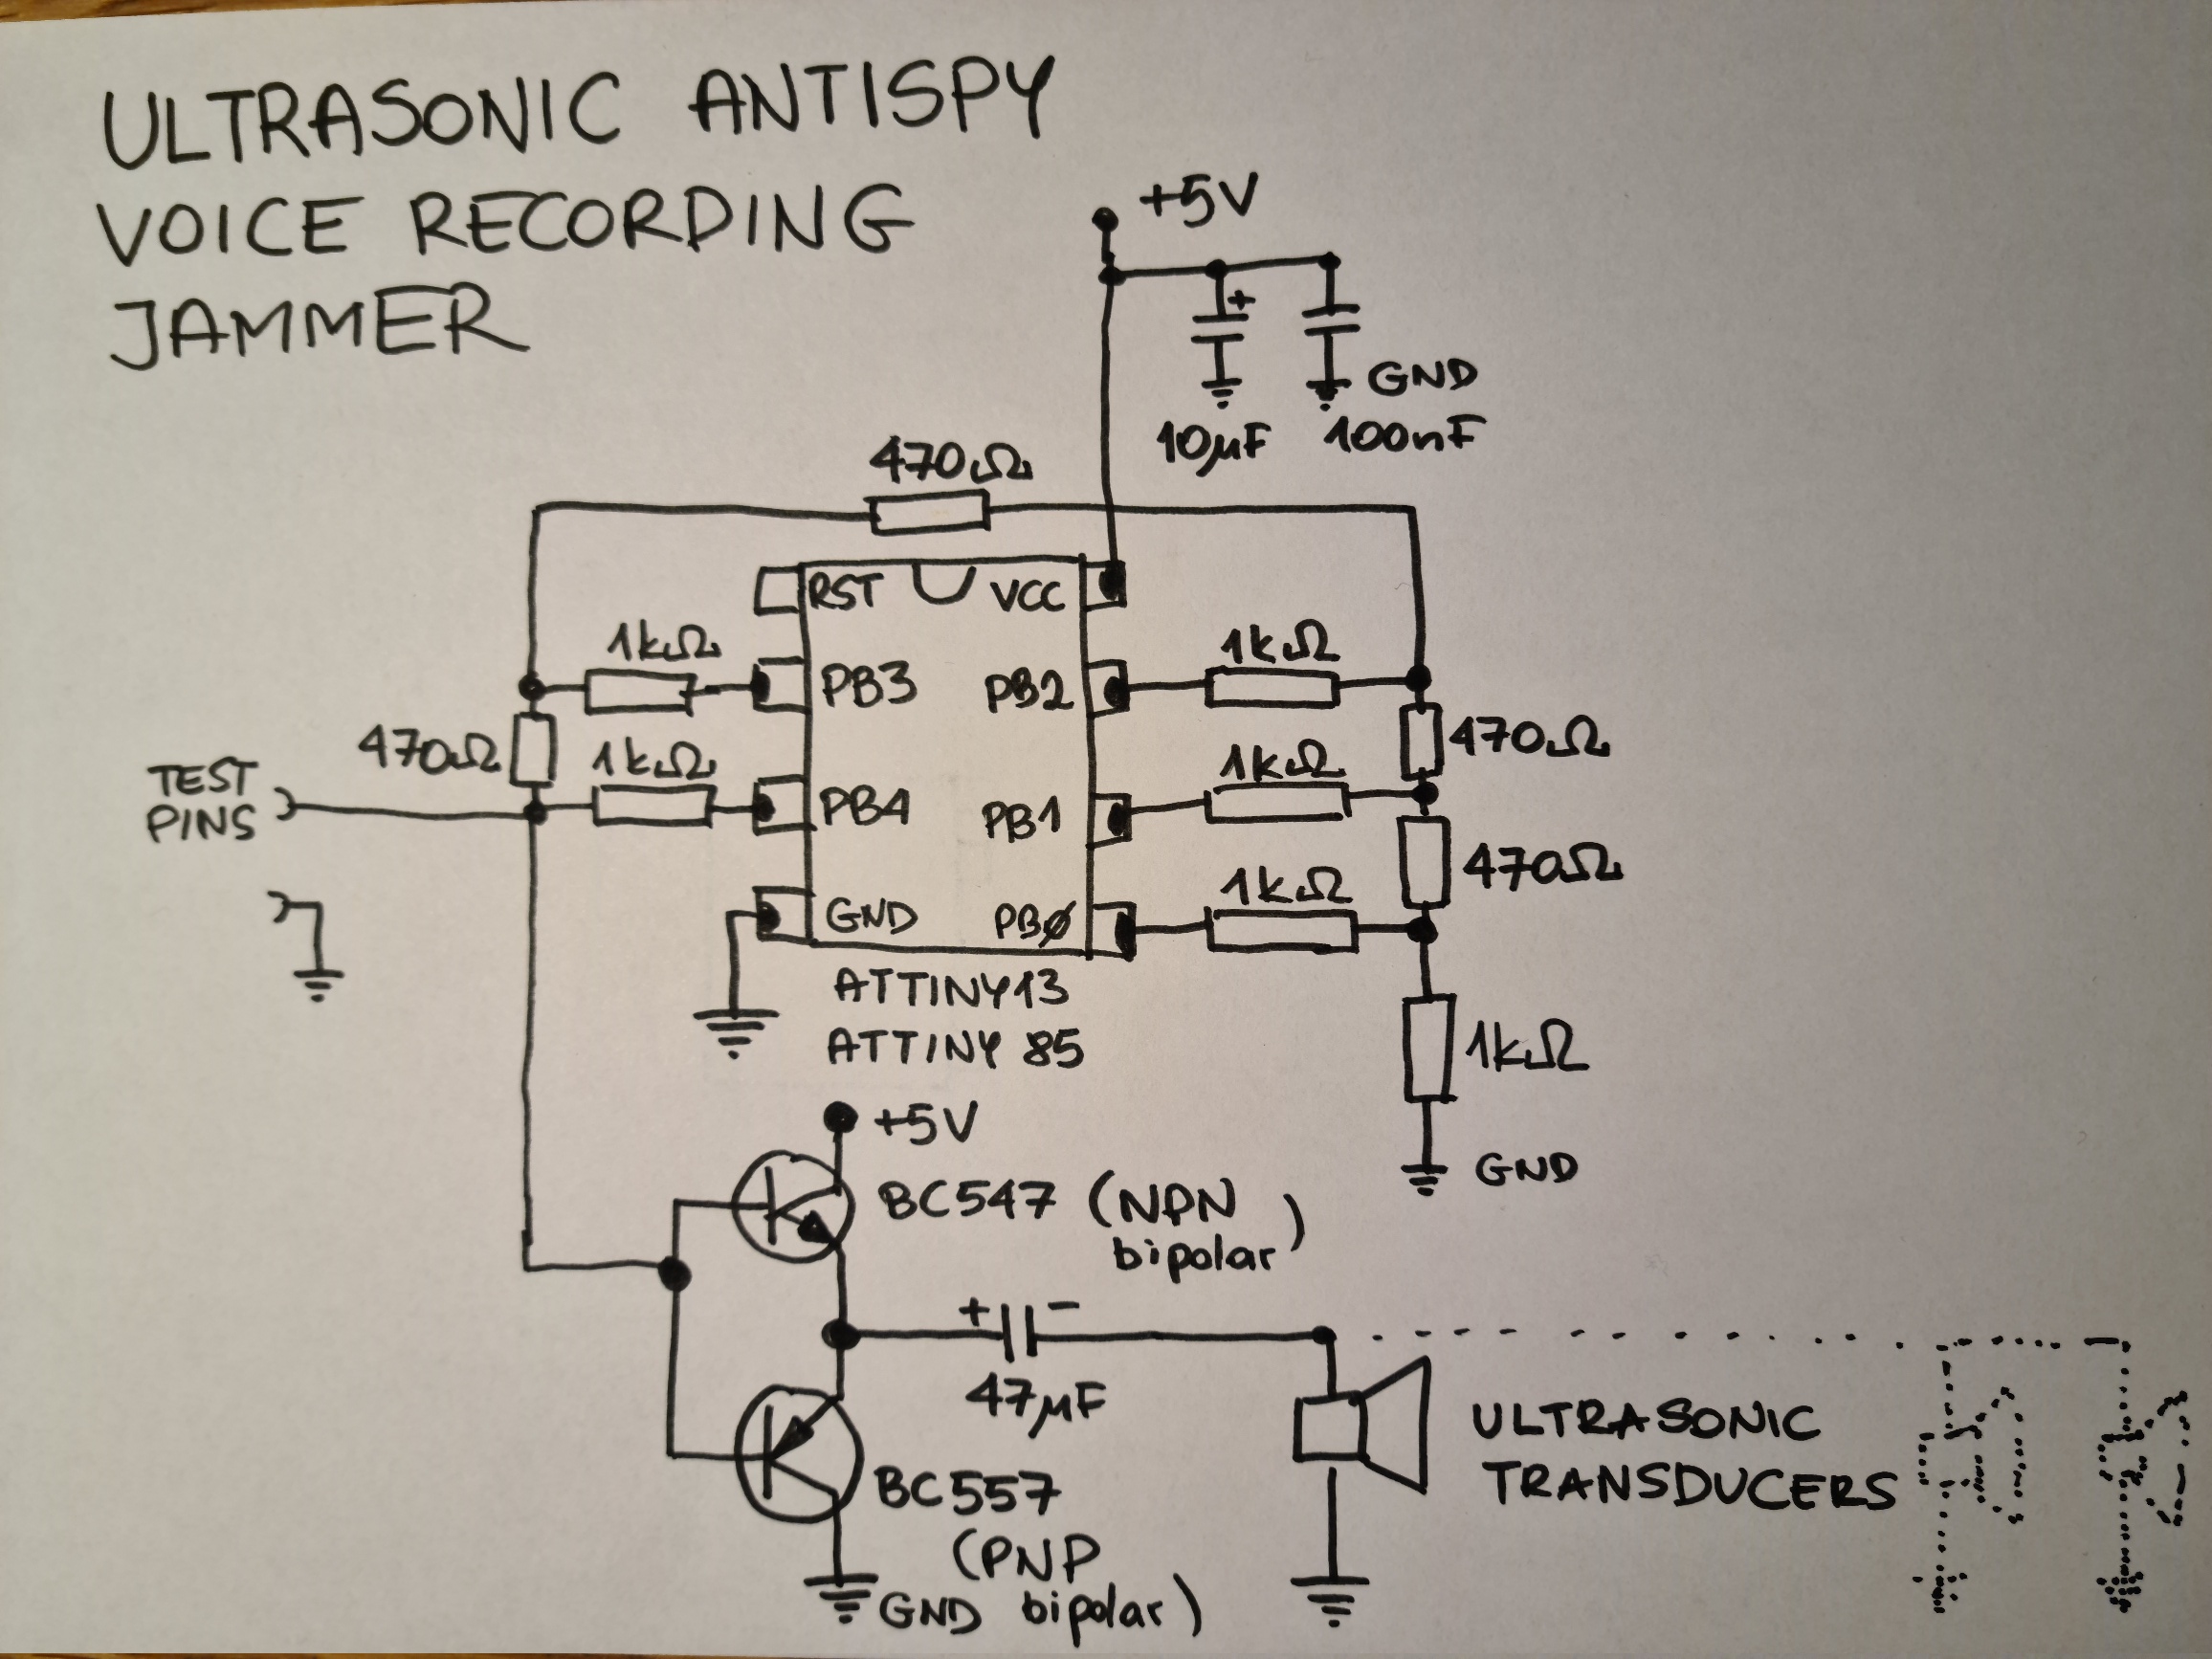 ULTRASONIC ANTISPY
VOICE RECORDING
JAMMER
+5V
+
GND
10µF 100nF
470Ω
RST VCC
1kΩ
PB3
PB2
1kΩ
470Ω
1kΩ
PB4
PB1
1kΩ
470Ω
TEST
PINS
470Ω
GND
PBØ
1kΩ
ATTINY13
ATTINY 85
1kΩ
GND
+5V
BC547 (NPN
bipolar)
+ −
47µF
ULTRASONIC
TRANSDUCERS
BC557
(PNP
bipolar)
GND